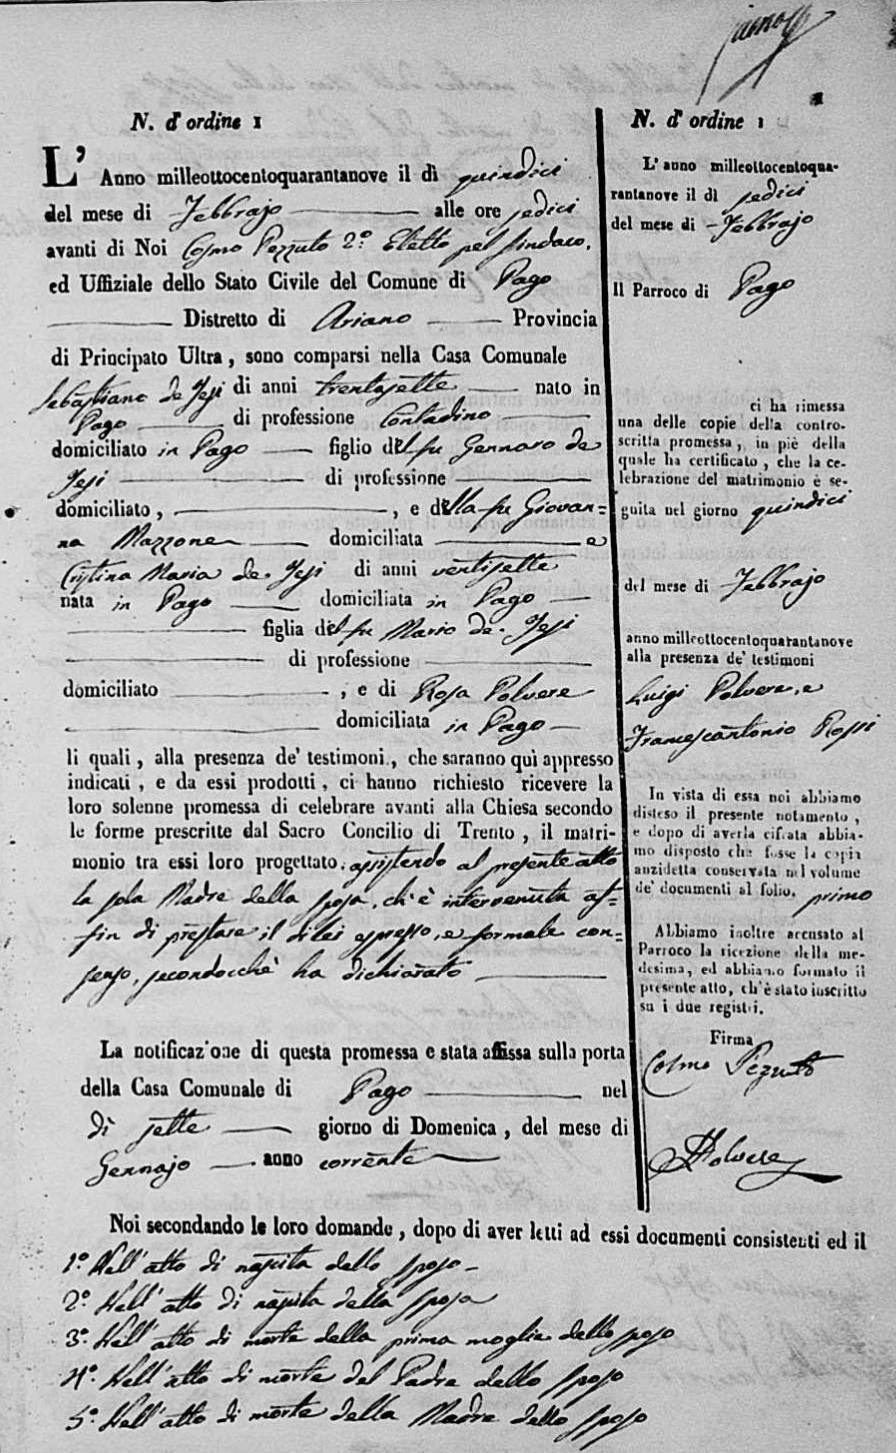 N. d'ordine 1
L'Anno milleottocentoquarantanove il dì quindici
del mese di Febbrajo alle ore sedici
avanti di Noi Cosmo Pezzuto 2º Eletto pel Sindaco,
ed Uffiziale dello Stato Civile del Comune di Pago
Distretto di Ariano Provincia
di Principato Ultra, sono comparsi nella Casa Comunale
Sebastiano de Jesi di anni trentasette nato in
Pago di professione Contadino
domiciliato in Pago figlio del fu Gennaro de
Jesi di professione
domiciliato, , e della fu Giovan=
na Mazzone domiciliata e
Cristina Maria de Jesi di anni ventisette
nata in Pago domiciliata in Pago
figlia del fu Mario de Jesi
di professione
domiciliato , e di Rosa Polvere
domiciliata in Pago
li quali, alla presenza de' testimoni, che saranno qui appresso
indicati, e da essi prodotti, ci hanno richiesto ricevere la
loro solenne promessa di celebrare avanti alla Chiesa secondo
le forme prescritte dal Sacro Concilio di Trento, il matri-
monio tra essi loro progettato, assistendo al presente atto
la sola Madre della sposa, ch'è intervenuta af=
fin di prestare il di lei espresso, e formale con=
senso, secondocchè ha dichiarato
La notificazione di questa promessa e stata affissa sulla porta
della Casa Comunale di Pago nel
dì sette giorno di Domenica, del mese di
Gennajo anno corrente
Noi secondando le loro domande, dopo di aver letti ad essi documenti consistenti ed il
1º. Nell'atto di nascita dello sposo
2º. Nell'atto di nascita della sposa
3º. Nell'atto di morte della prima moglie dello sposo
4º. Nell'atto di morte del Padre dello sposo
5º. Nell'atto di morte della Madre dello sposo
N. d'ordine 1
L'anno milleottocentoqua-
rantanove il dì sedici
del mese di Febbrajo
Il Parroco di Pago
ci ha rimessa
una delle copie della contro-
scritta promessa, in piè della
quale ha certificato, che la ce-
lebrazione del matrimonio è se-
guita nel giorno quindici
del mese di Febbrajo
anno milleottocentoquarantanove
alla presenza de' testimoni
Luigi Polvere, e
Francescantonio Rossi
In vista di essa noi abbiamo
disteso il presente notamento,
e dopo di averla cifrata abbia-
mo disposto che fosse la copia
anzidetta conservata nel volume
de' documenti al folio. primo
Abbiamo inoltre accusato al
Parroco la ricezione della me-
desima, ed abbiamo formato il
presente atto, ch'è stato inscritto
su i due registri.
Firma
Cosmo Pezzuto
Polvere